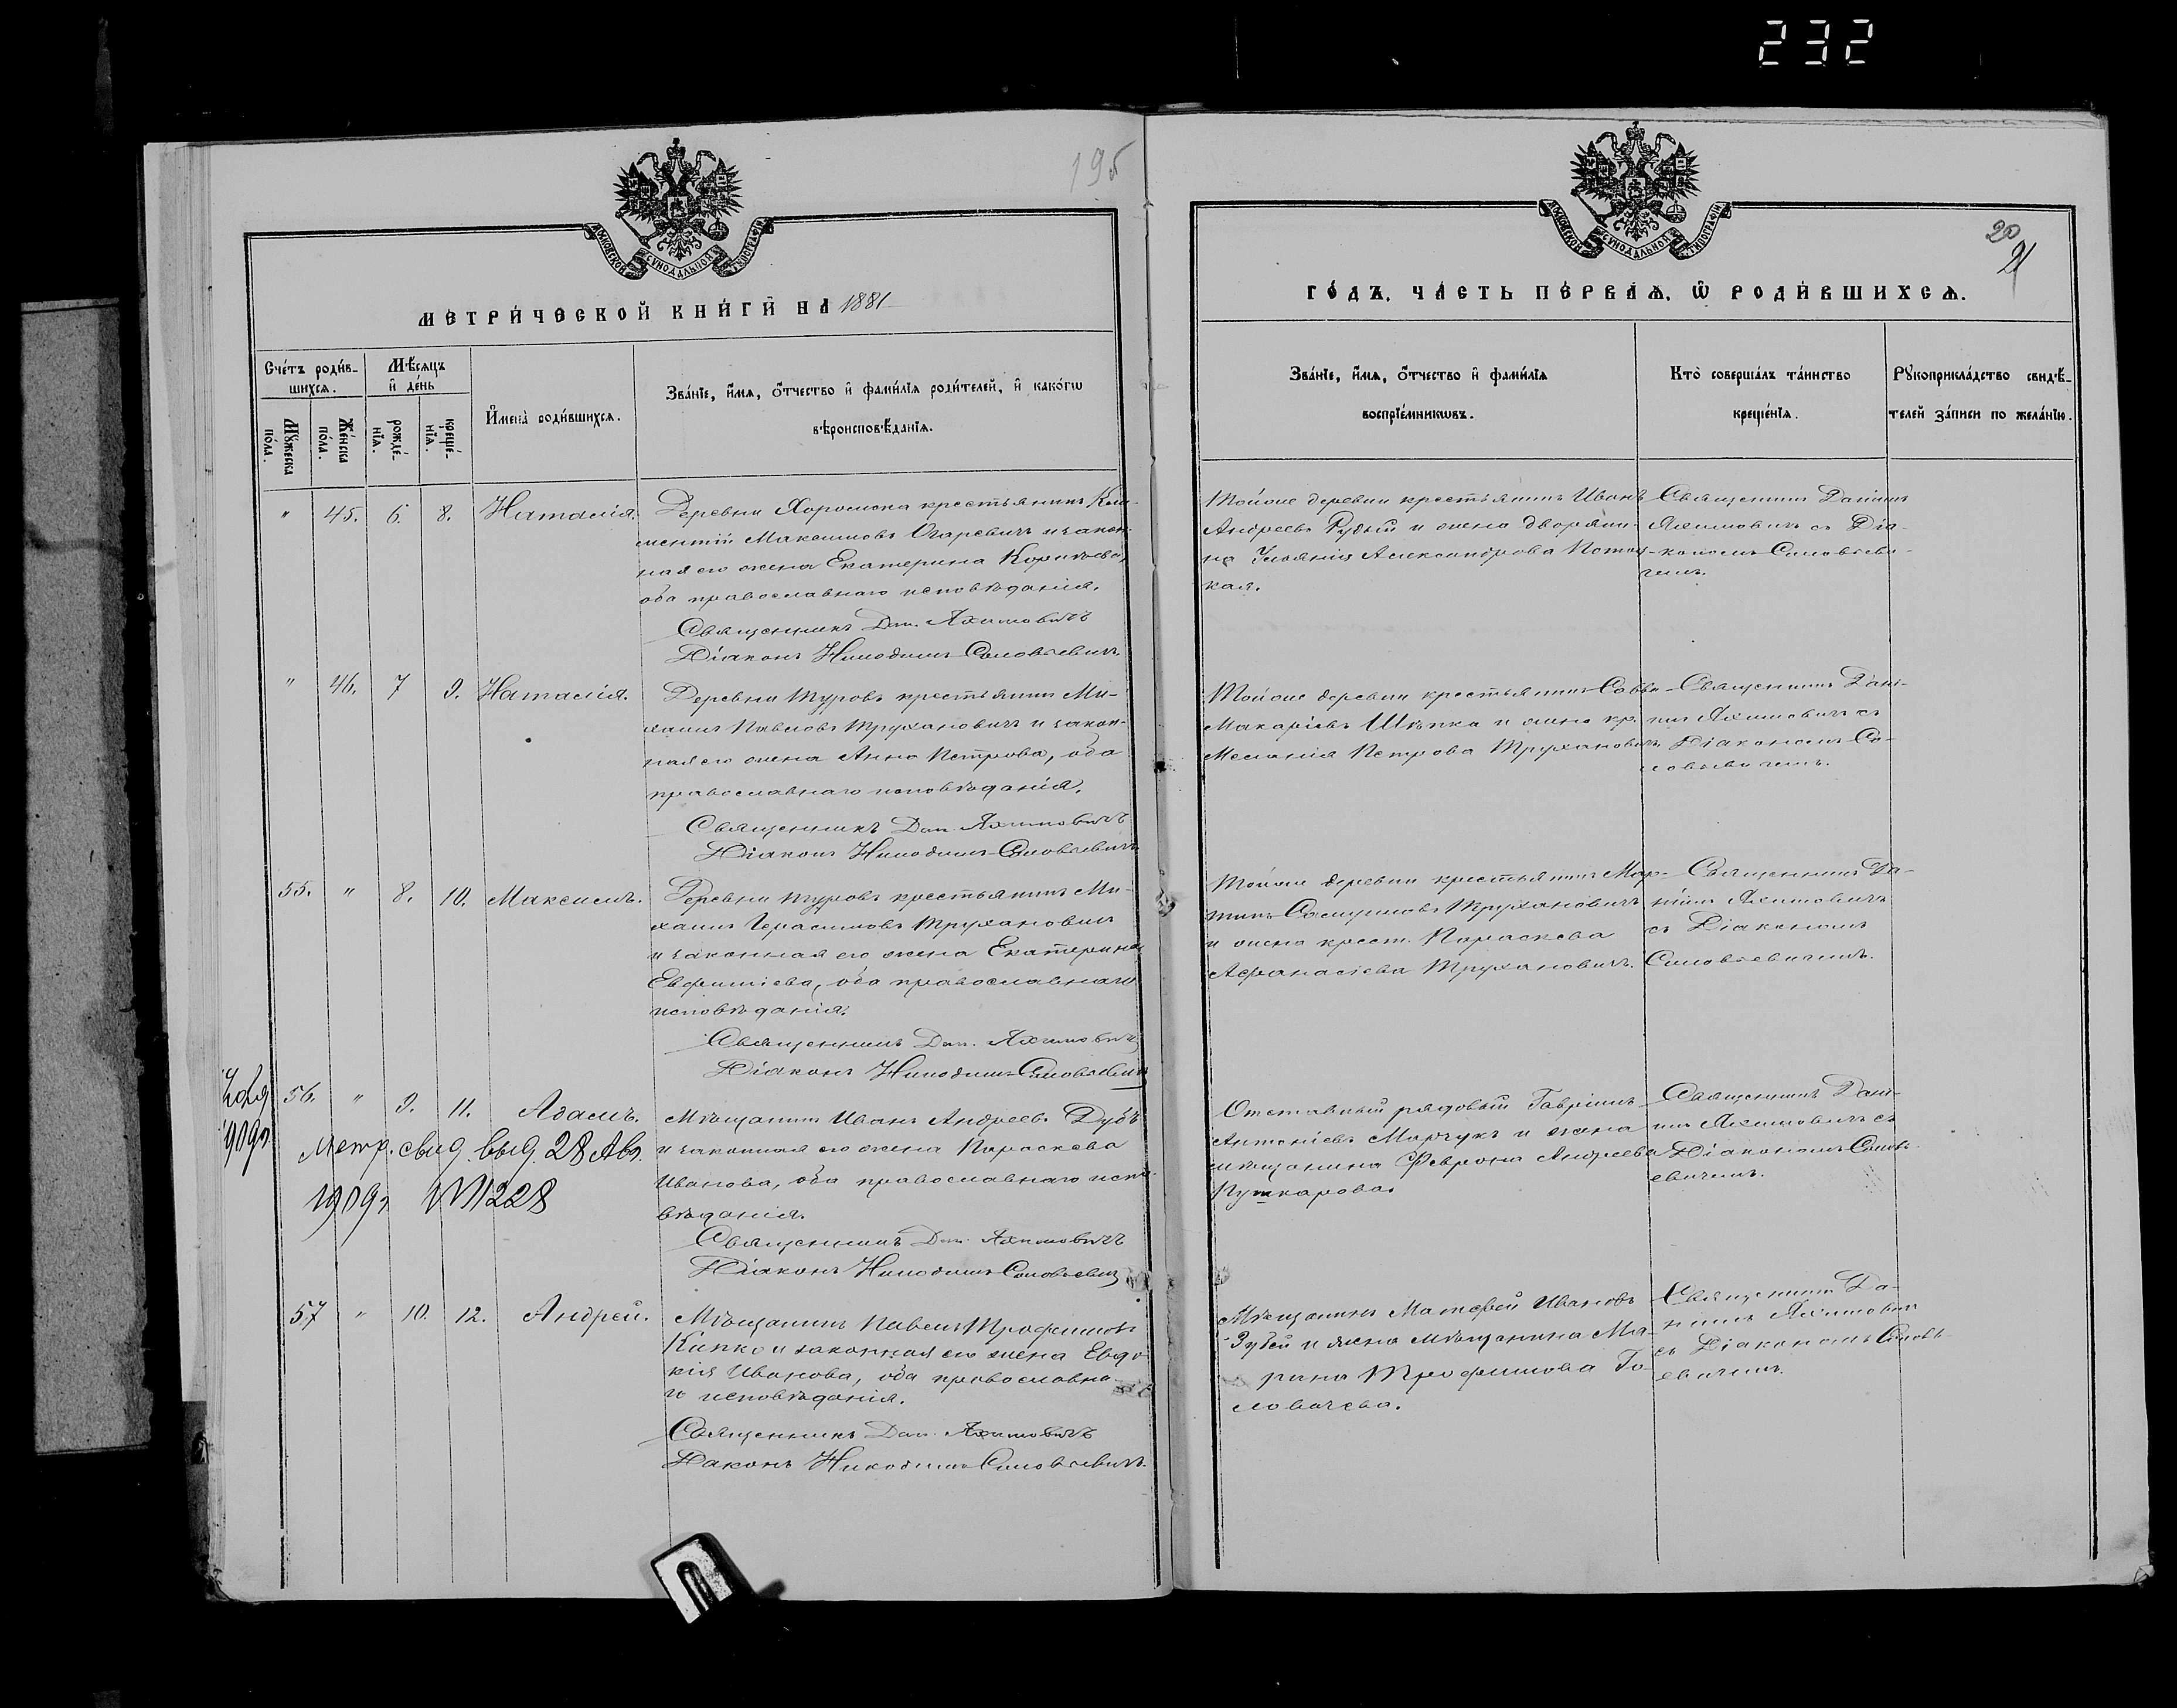 232
195
МОСКОВСКОЙ СѴНОДАЛЬНОЙ ТИПОГРАФІИ
МЕТРИЧЕСКОЙ КНИГИ НА 1881
Счетъ родив-
шихся.
Мѣсяцъ
и день
Мужеска
пола.
Женска
пола.
рожде-
нія.
креще-
нія.
Имена родившихся.
Званіе, имя, отчество и фамилія родителей, и какогѡ
вѣроисповѣданія.
" 45. 6. 8. Наталія.
Деревни Хоромска крестьянинъ Кли-
ментій Максимовъ Огаревичъ и закон-
ная его жена Екатерина Корнѣева,
оба православнаго исповѣданія.
Священникъ Дан. Яхимовичъ
Діаконъ Никодимъ Соловьевичъ
" 46. 7 9. Наталія.
Деревни Туровъ крестьянинъ Ми-
хаилъ Павловъ Трухановичъ и закон-
ная его жена Анна Петрова, оба
православнаго исповѣданія.
Священникъ Дан. Яхимовичъ
Діаконъ Никодимъ Соловьевичъ
55. " 8. 10. Максимъ.
Деревни Туровъ крестьянинъ Ми-
хаилъ Герасимовъ Трухановичъ
и законная его жена Екатерина
Евфиміева, оба православнаго
исповѣданія.
Священникъ Дан. Яхимовичъ
Діаконъ Никодимъ Соловьевичъ
56. " 9. 11. Адамъ.
1909г
Метр. свид. выд. 28 Авг.
1909г №1228
Мѣщанинъ Иванъ Андреевъ Дубъ
и законная его жена Параскева
Иванова, оба православнаго испо-
вѣданія.
Священникъ Дан. Яхимовичъ
Діаконъ Никодимъ Соловьевичъ
57 " 10. 12. Андрей.
Мѣщанинъ Павелъ Трофимовъ
и законная его жена Евдо-
кія Иванова, оба православна-
го исповѣданія.
Священникъ Дан. Яхимовичъ
Діаконъ Никодимъ Соловьевичъ
20
21
МОСКОВСКОЙ СѴНОДАЛЬНОЙ ТИПОГРАФІИ
ГОДЪ, ЧАСТЬ ПЕРВАЯ, Ѡ РОДИВШИХСЯ.
Званіе, имя, отчество и фамилія
воспріемникѡвъ.
Кто совершалъ таинство
крещенія.
Рукоприкладство свидѣ-
телей записи по желанію.
Тойже деревни крестьянинъ Иванъ
Андреевъ Рудый и жена дворяни-
на Уліянія Александрова Потоц-
кая.
Священникъ Даніилъ
Яхимовичъ съ Діа-
кономъ Соловьеви-
чемъ.
Тойже деревни крестьянинъ Савва
Макаріевъ Шкѣпка и жена кр.
Меланія Петрова Трухановичъ.
Священникъ Дані-
илъ Яхимовичъ съ
Діакономъ Со-
ловьевичемъ.
Тойже деревни крестьянинъ Мар-
тинъ Самуиловъ Трухановичъ
и жена крест. Параскева
Афанасіева Трухановичъ.
Священникъ Да-
ніилъ Яхимовичъ
съ Діакономъ
Соловьевичемъ.
Отставный рядовый Гавріилъ
Антоніевъ Марчукъ и жена
мѣщанина Феврона Андреева
Пушкарова.
Священникъ Дані-
илъ Яхимовичъ съ
Діакономъ Соловь-
евичемъ.
Мѣщанинъ Матфей Ивановъ
Зубей и жена мѣщанина Ма-
рина Трофимова Го-
ловачева.
Священникъ Да-
ніилъ Яхимовичъ
съ Діакономъ Соловь-
евичемъ.